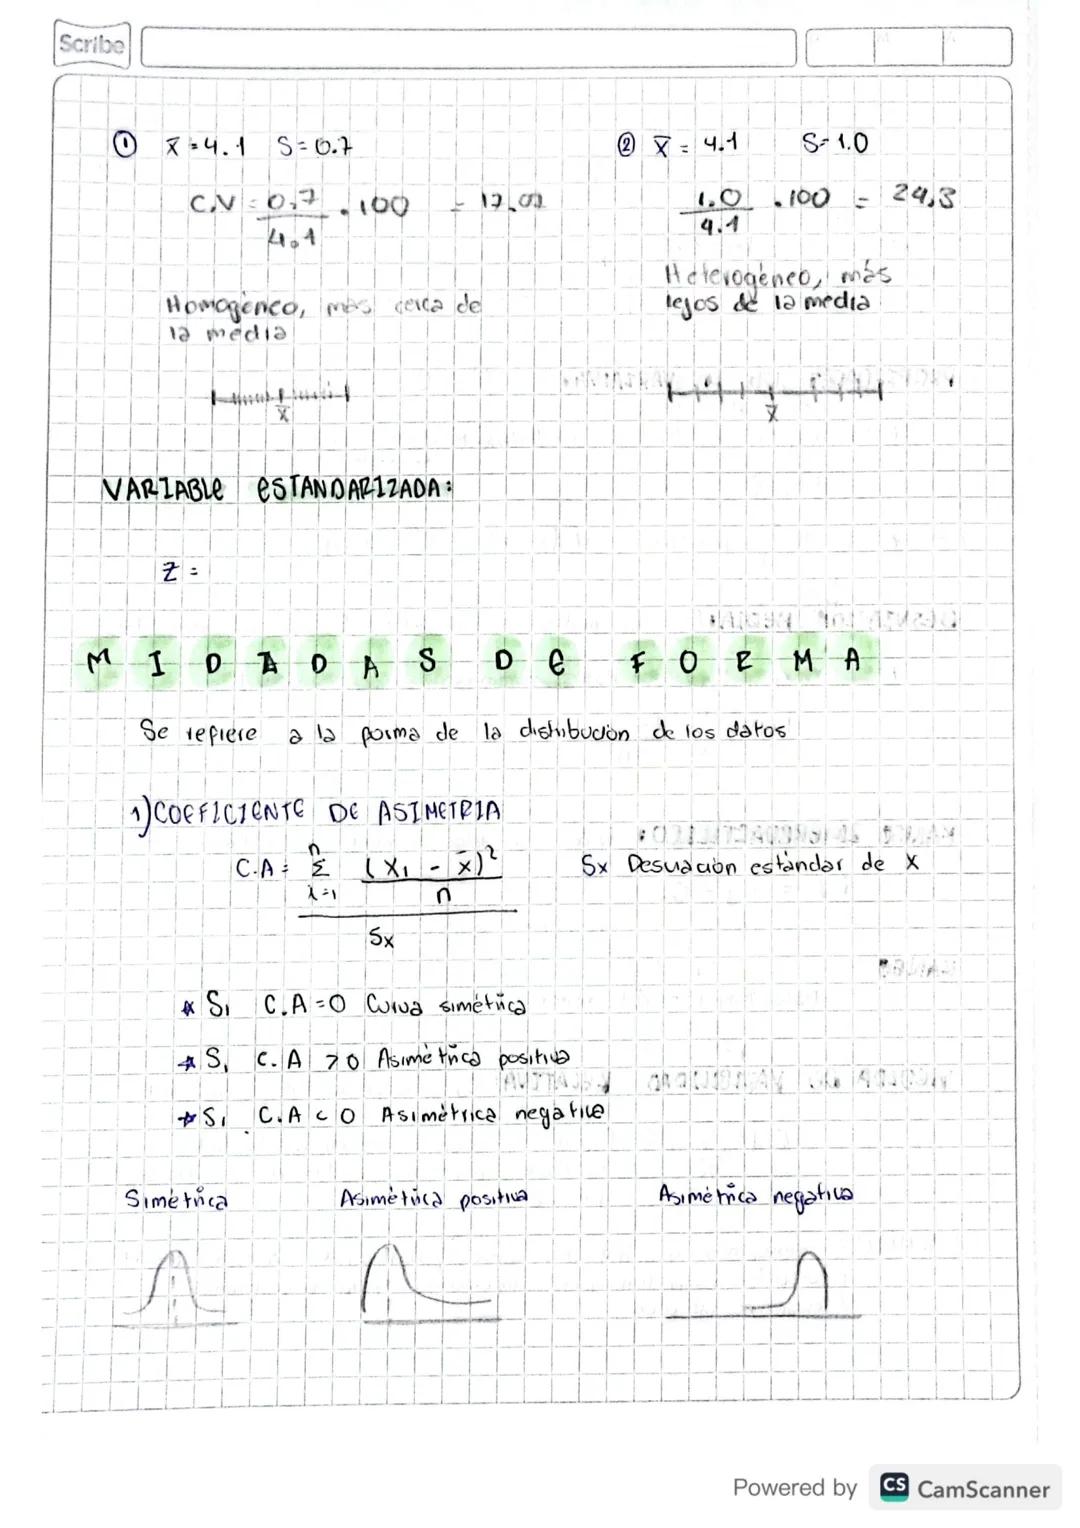 Scribe
① x̄ = 4.1 S = 0.7
C.V = 0.7 / 4.1 . 100 = 17.07
Homogéneo, más cerca de
la media
x̄
② x̄ = 4.1 S = 1.0
1.0 / 4.1 . 100 = 24,3
Heterogéneo, más
lejos de la media
x̄
VARIABLE ESTANDARIZADA:
Z =
MIDADAS DE FORMA
Se refiere a la forma de la distribución de los datos
1) COEFICIENTE DE ASIMETRIA
C.A = n Σ i=1 (x₁ - x̄)² / n / Sx
Sx Desviación estándar de x
* Si C.A = 0 Curva simétrica
* Si C.A > 0 Asimétrica positiva
* Si C.A < 0 Asimétrica negativa
Simétrica Asimétrica positiva Asimétrica negativa
Powered by CS CamScanner